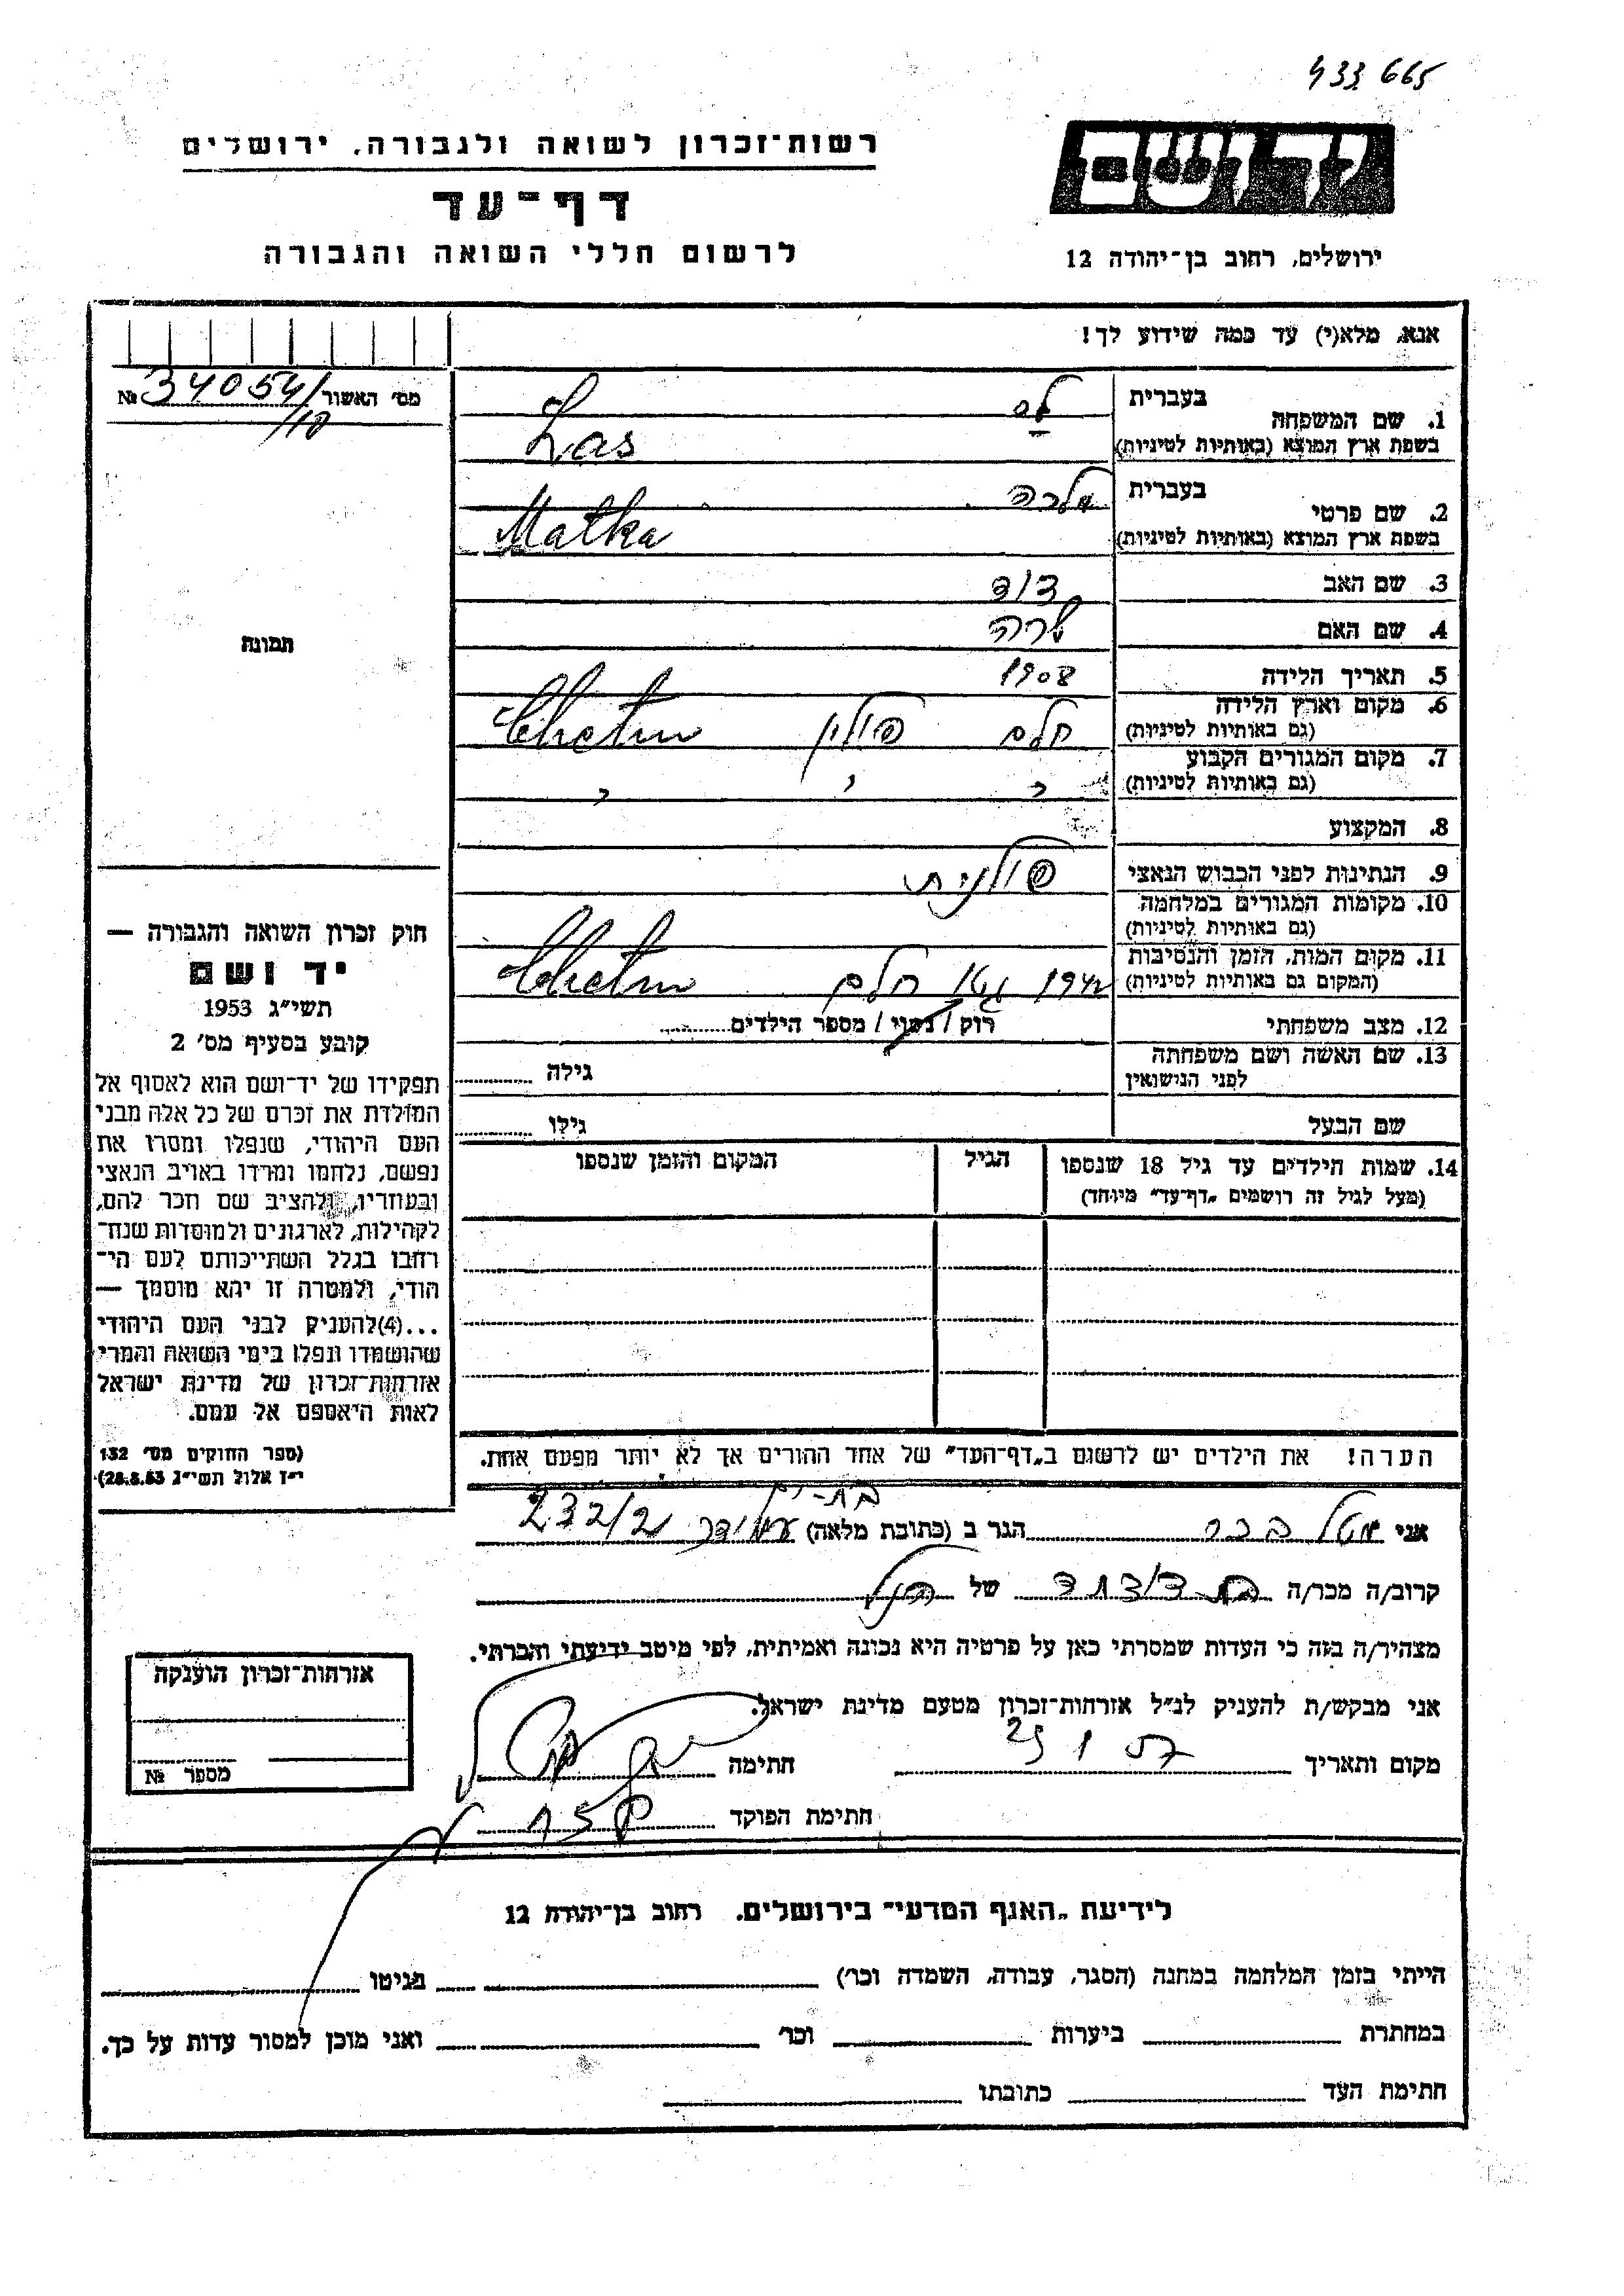 433665
רשות־זכרון לשואה ולגבורה, ירושלים
יד ושם
דף־עד
לרשום חללי השואה והגבורה
ירושלים, רחוב בן־יהודה 12
אנא, מלא(י) עד כמה שידוע לך!
מס' האשור 34054/ №
/10
1. שם המשפחה
בעברית לס
בשפת ארץ המוצא (באותיות לטיניות) Las
2. שם פרטי
בעברית מלכה
בשפת ארץ המוצא (באותיות לטיניות) Malka
3. שם האב דוד
4. שם האם שרה
5. תאריך הלידה 1908
6. מקום וארץ הלידה חלם פולין Chelm
(גם באותיות לטיניות)
7. מקום המגורים הקבוע " " "
(גם באותיות לטיניות)
8. המקצוע
9. הנתינות לפני הכבוש הנאצי פולנית
10. מקומות המגורים במלחמה
(גם באותיות לטיניות)
11. מקום המות, הזמן והנסיבות 1942 גטו חלם Chelm
(המקום גם באותיות לטיניות)
12. מצב משפחתי רוק / נשוי / מספר הילדים
13. שם האשה ושם משפחתה גילה
לפני הנישואין
שם הבעל גילו
14. שמות הילדים עד גיל 18 שנספו הגיל המקום והזמן שנספו
(מעל לגיל זה רושמים „דף־עד" מיוחד)
הערה! את הילדים יש לרשום ב„דף־העד" של אחד ההורים אך לא יותר מפעם אחת.
תמונה
חוק זכרון השואה והגבורה —
יד ושם
תשי"ג 1953
קובע בסעיף מס' 2
תפקידו של יד־ושם הוא לאסוף אל
המולדת את זכרם של כל אלה מבני
העם היהודי, שנפלו ומסרו את
נפשם, נלחמו ומרדו באויב הנאצי
ובעוזריו, ולהציב שם וזכר להם,
לקהילות, לארגונים ולמוסדות שנח־
רבו בגלל השתייכותם לעם הי־
הודי, ולמטרה זו יהא מוסמך —
...(4)להעניק לבני העם היהודי
שהושמדו ונפלו בימי השואה והמרי
אזרחות־זכרון של מדינת ישראל
לאות היאספם אל עמם.
(ספר החוקים מס' 132
י"ז אלול תשי"ג 28.8.53)
בת-ים
אני הגר ב (כתובת מלאה) עמידר 232/2
קרוב/ה מכר/ה בת דודה של הנ"ל
מצהיר/ה בזה כי העדות שמסרתי כאן על פרטיה היא נכונה ואמיתית, לפי מיטב ידיעתי והכרתי.
אני מבקש/ת להעניק לנ"ל אזרחות־זכרון מטעם מדינת ישראל.
מקום ותאריך 25 1 57 חתימה
חתימת הפוקד
אזרחות־זכרון הוענקה
מספר №
לידיעת „האגף המדעי" בירושלים, רחוב בן־יהודה 12
הייתי בזמן המלחמה במחנה (הסגר, עבודה, השמדה וכו') בגיטו
במחתרת ביערות וכו' ואני מוכן למסור עדות על כך.
חתימת העד כתובתו